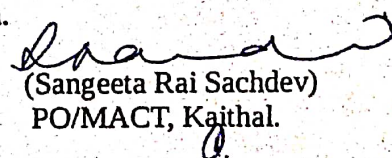 (Sangeeta Rai Sachdev)
PO/MACT, Kaithal.